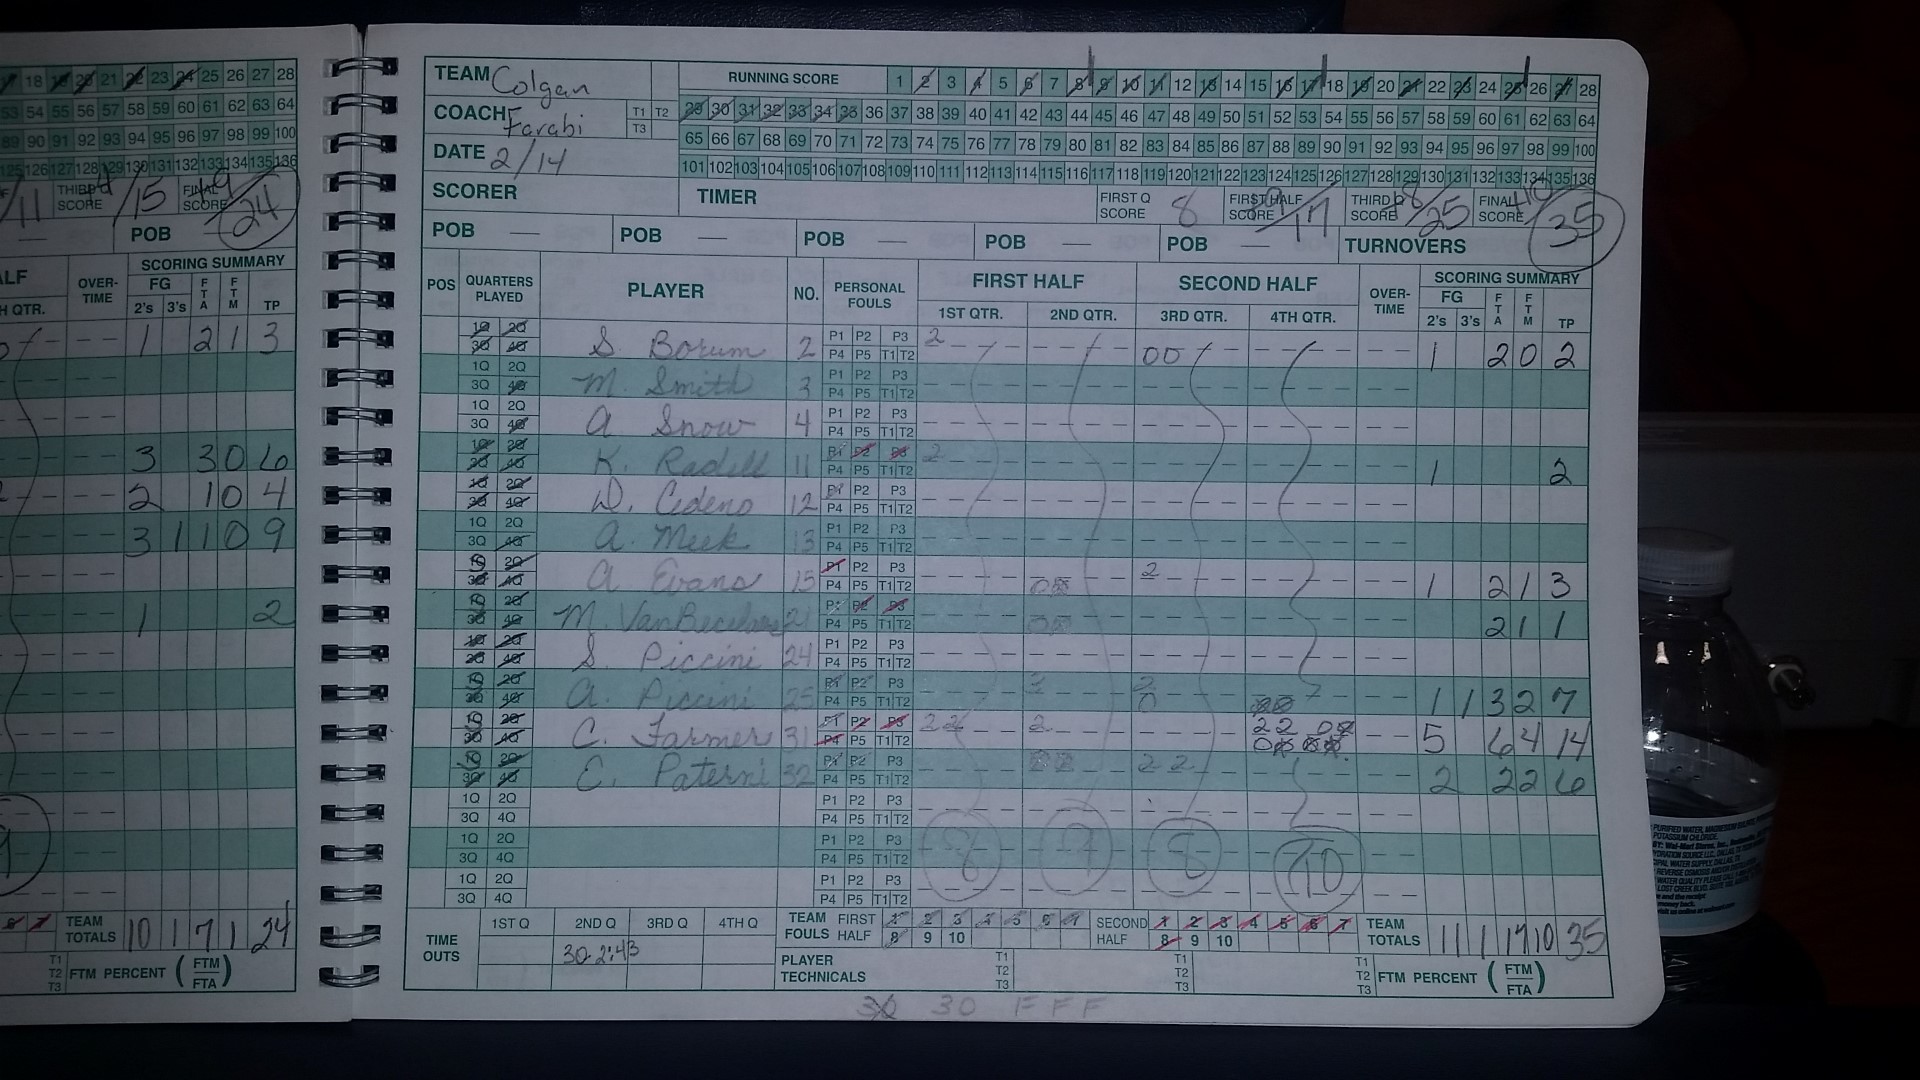 18 19 20 21 22 23 24 25 26 27 28
53 54 55 56 57 58 59 60 61 62 63 64
89 90 91 92 93 94 95 96 97 98 99 100
125 126 127 128 129 130 131 132 133 134 135 136
/11 THIRD SCORE /15 FINAL SCORE 24
POB
OVER-TIME SCORING SUMMARY
FG FTA FTM TP
QTR. 2's 3's
1 2 1 3
3 3 0 6
2 1 0 4
3 1 1 0 9
1 2
TEAM TOTALS 10 1 7 1 24
T1 T2 T3 FTM PERCENT ( FTM / FTA )
TEAM Colgan
RUNNING SCORE 1 2 3 4 5 6 7 8 9 10 11 12 13 14 15 16 17 18 19 20 21 22 23 24 25 26 27 28
COACH Farabi T1 T2 T3
29 30 31 32 33 34 35 36 37 38 39 40 41 42 43 44 45 46 47 48 49 50 51 52 53 54 55 56 57 58 59 60 61 62 63 64
DATE 2/14
65 66 67 68 69 70 71 72 73 74 75 76 77 78 79 80 81 82 83 84 85 86 87 88 89 90 91 92 93 94 95 96 97 98 99 100
101 102 103 104 105 106 107 108 109 110 111 112 113 114 115 116 117 118 119 120 121 122 123 124 125 126 127 128 129 130 131 132 133 134 135 136
SCORER TIMER FIRST Q SCORE 8 FIRST HALF SCORE +9/17 THIRD SCORE +8/25 FINAL SCORE +10 35
POB — POB — POB — POB — POB — TURNOVERS
POS QUARTERS PLAYED PLAYER NO. PERSONAL FOULS FIRST HALF SECOND HALF OVER-TIME SCORING SUMMARY
1ST QTR. 2ND QTR. 3RD QTR. 4TH QTR. FG 2's 3's FTA FTM TP
1Q 2Q 3Q 4Q S. Borum 2 P1 P2 P3 P4 P5 T1 T2 2 00 1 2 0 2
1Q 2Q 3Q 4Q M. Smith 3 P1 P2 P3 P4 P5 T1 T2
1Q 2Q 3Q 4Q A. Snow 4 P1 P2 P3 P4 P5 T1 T2
1Q 2Q 3Q 4Q K. Radell 11 P1 P2 P3 P4 P5 T1 T2 2 1 2
1Q 2Q 3Q 4Q D. Cedeno 12 P1 P2 P3 P4 P5 T1 T2
1Q 2Q 3Q 4Q A. Meek 13 P1 P2 P3 P4 P5 T1 T2
1Q 2Q 3Q 4Q A. Evans 15 P1 P2 P3 P4 P5 T1 T2 2 1 2 1 3
1Q 2Q 3Q 4Q M. 21 P1 P2 P3 P4 P5 T1 T2 2 1 1
1Q 2Q 3Q 4Q S. Piccini 24 P1 P2 P3 P4 P5 T1 T2
1Q 2Q 3Q 4Q A. Piccini 25 P1 P2 P3 P4 P5 T1 T2 3 2 0 1 1 3 2 7
1Q 2Q 3Q 4Q C. Farmer 31 P1 P2 P3 P4 P5 T1 T2 2 2 2 2 2 5 6 4 14
1Q 2Q 3Q 4Q C. Paterni 32 P1 P2 P3 P4 P5 T1 T2 2 2 2 2 2 6
1Q 2Q 3Q 4Q P1 P2 P3 P4 P5 T1 T2
1Q 2Q 3Q 4Q P1 P2 P3 P4 P5 T1 T2 8 9 8 10
1Q 2Q 3Q 4Q P1 P2 P3 P4 P5 T1 T2
TIME OUTS 1ST Q 2ND Q 3RD Q 4TH Q TEAM FOULS FIRST HALF 1 2 3 4 5 6 7 8 9 10 SECOND HALF 1 2 3 4 5 6 7 8 9 10 TEAM TOTALS 11 1 17 10 35
30 2:43
PLAYER TECHNICALS T1 T2 T3 T1 T2 T3 T1 T2 T3 FTM PERCENT ( FTM / FTA )
30 30 F F F
PURIFIED WATER,
POTASSIUM CHLORIDE.